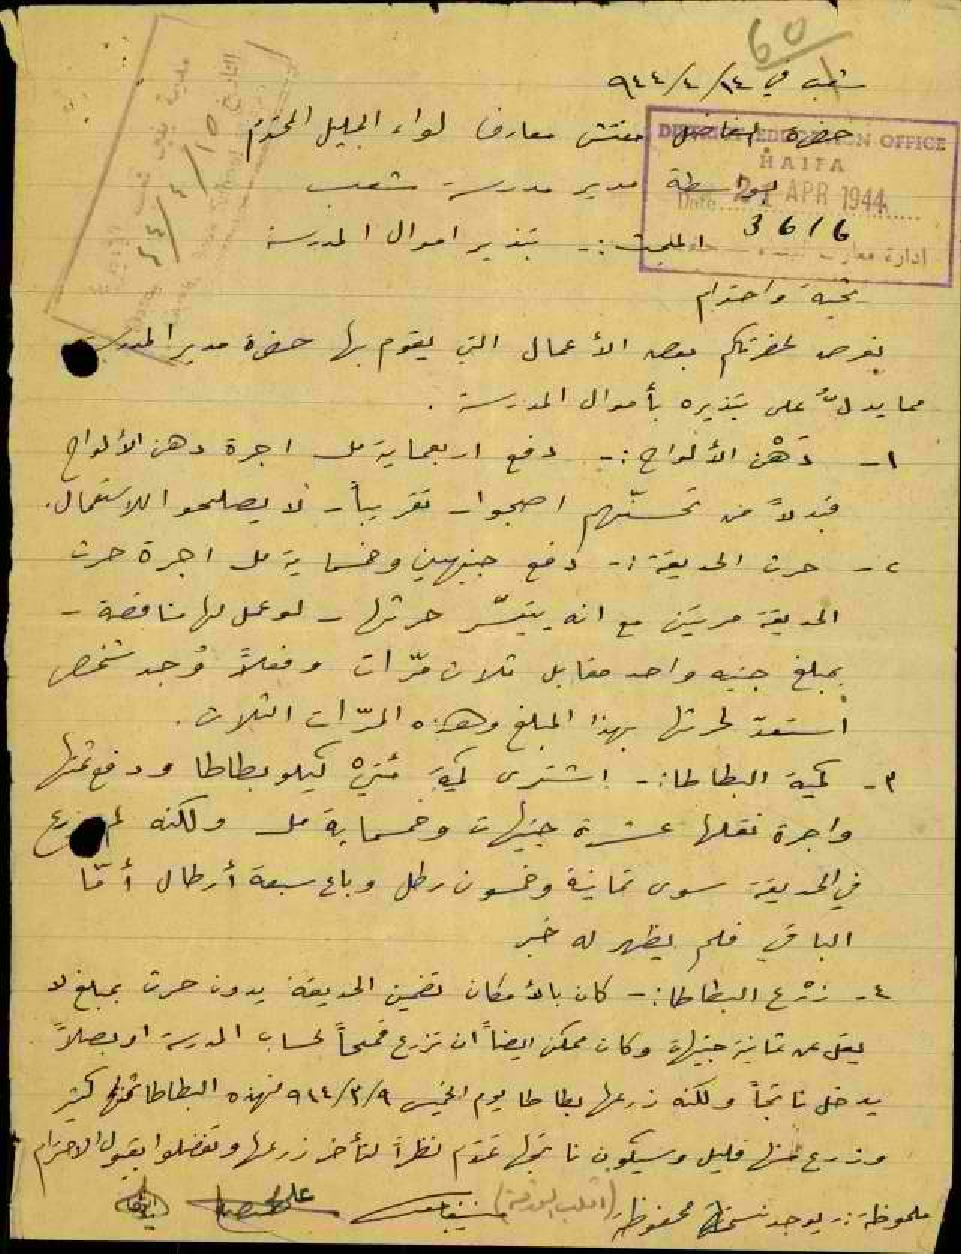 60
شعب في ١٤/٤/٩٤٤
حضرة الفاضل مفتش معارف لواء الجليل المحترم
DISTRICT EDUCATION OFFICE
HAIFA
بواسطة مدير مدرسة شعب
Date 21 APR 1944
3616
المبحث :- تبذير اموال المدرسة
ادارة معارف
تحية واحترام
نعرض لحضرتكم بعض الأعمال التي يقوم بها حضرة مدير المدرسة
مما يدلّ على تبذيره بأموال المدرسة .
١- دَهْن الألواح :- دفع اربعماية مل اجرة دهن الألواح
فبدلاً من تحسنّهم اصبحوا - تقريباً - لا يصلحوا للاستعمال .
٢- حرث الحديقة :- دفع جنيهين وخمساية مل اجرة حرث
الحديقة مرتين مع انه يتيسّر حرثها - لو عمل لها مناقصة -
بمبلغ جنيه واحد مقابل ثلاث مرّات وفعلاً وُجد شخص
أستعدّ لحرثها بهذا المبلغ وهذه المرّات الثلاث .
٣- كمية البطاطا :- اشترى كمية مئتيْ كيلو بطاطا ودفع ثمنها
واجرة نقلها عشرة جنيهات وخمساية مل ولكنه لم يزرع
في الحديقة سوى ثمانية وخمسون رطل وباع سبعة أرطال أمّا
الباقي فلم يظهر له خبر
٤- زرْع البطاطا :- كان بالأمكان تضمين الحديقة بدون حرث بمبلغ لا
يقل عن ثمانية جنيهات وكان ممكن ايضاً ان تزرع قمحاً لحساب المدرسة او بصلاً
يدخل ناتجاً ولكنه زرعها بطاطا يوم الخميس ٩/٣/٩٤٤ فهذه البطاطا ثمنها كثير
وزرع منها قليل وسيكون ناتجها عدم نظراً لتأخر زرعها وتفضلوا بقبول الاحترام
ملحوظة :- يوجد نسخة محفوظة (اقلب الورقة)